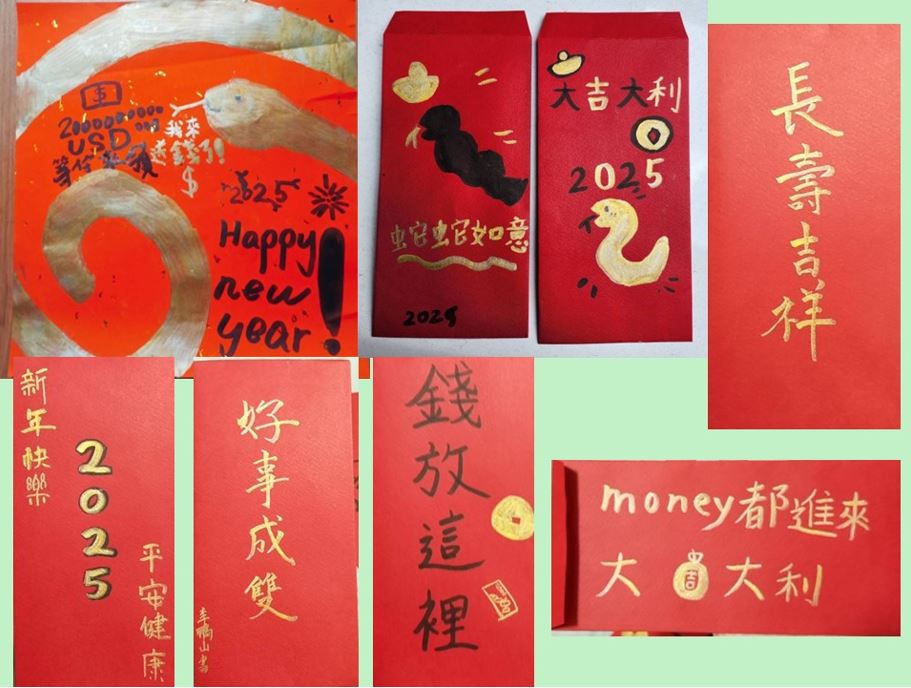 USD
我來
送錢了!
$
2025
Happy
new
year!
蛇蛇如意
2025
大吉大利
2025
長壽吉祥
新年快樂
2025
平安健康
好事成雙
錢放這裡
money都進來
大周大利